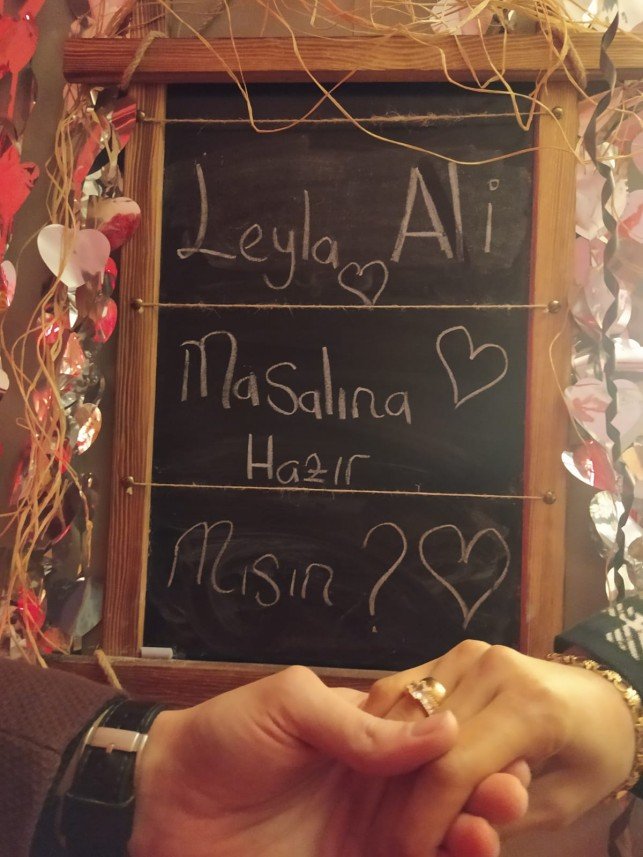 Leyla Ali
Masalına
Hazır
Mısın ?